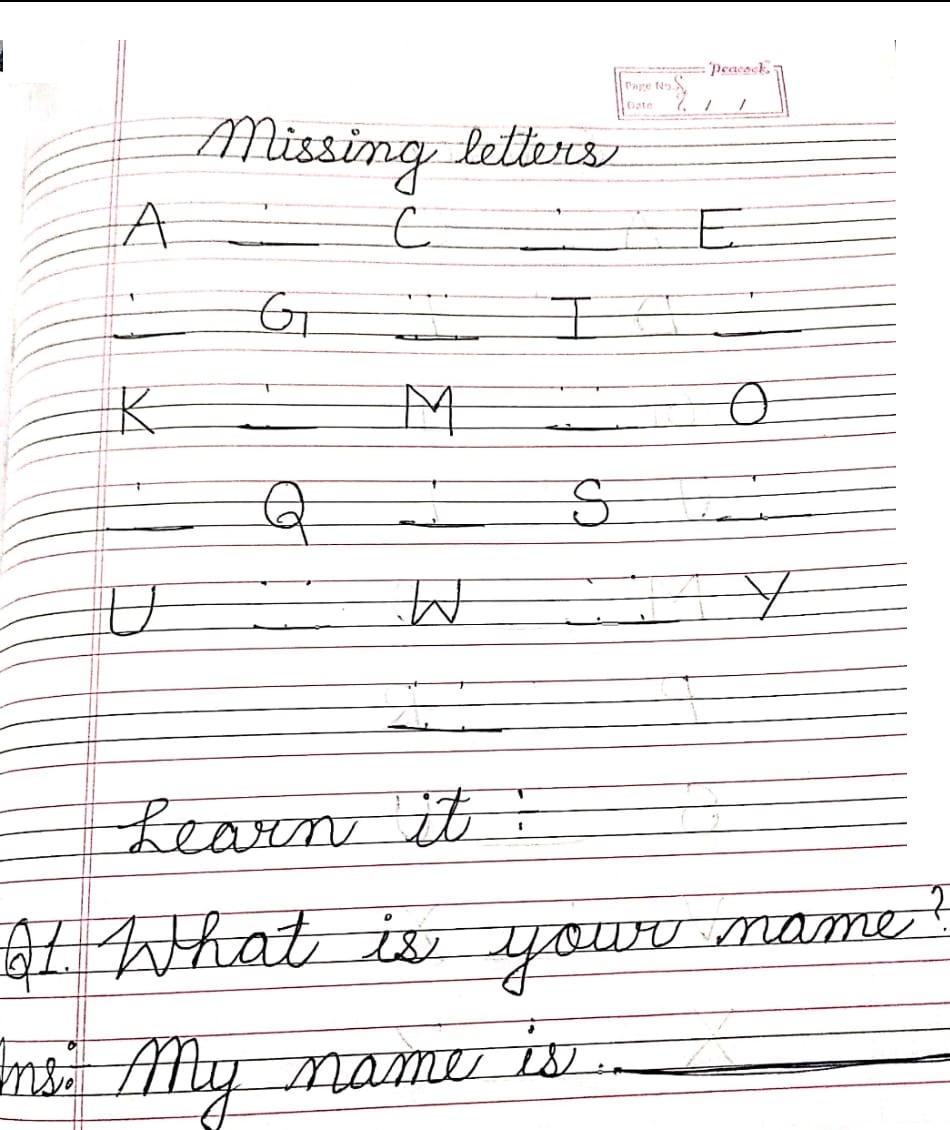 Peacock
Page No.
Date / /
Missing letters
A __ C __ E
__ G __ I __
K __ M __ O
__ Q __ S __
U __ W __ Y
__
Learn it :
Q1. What is your name?
Ans: My name is __